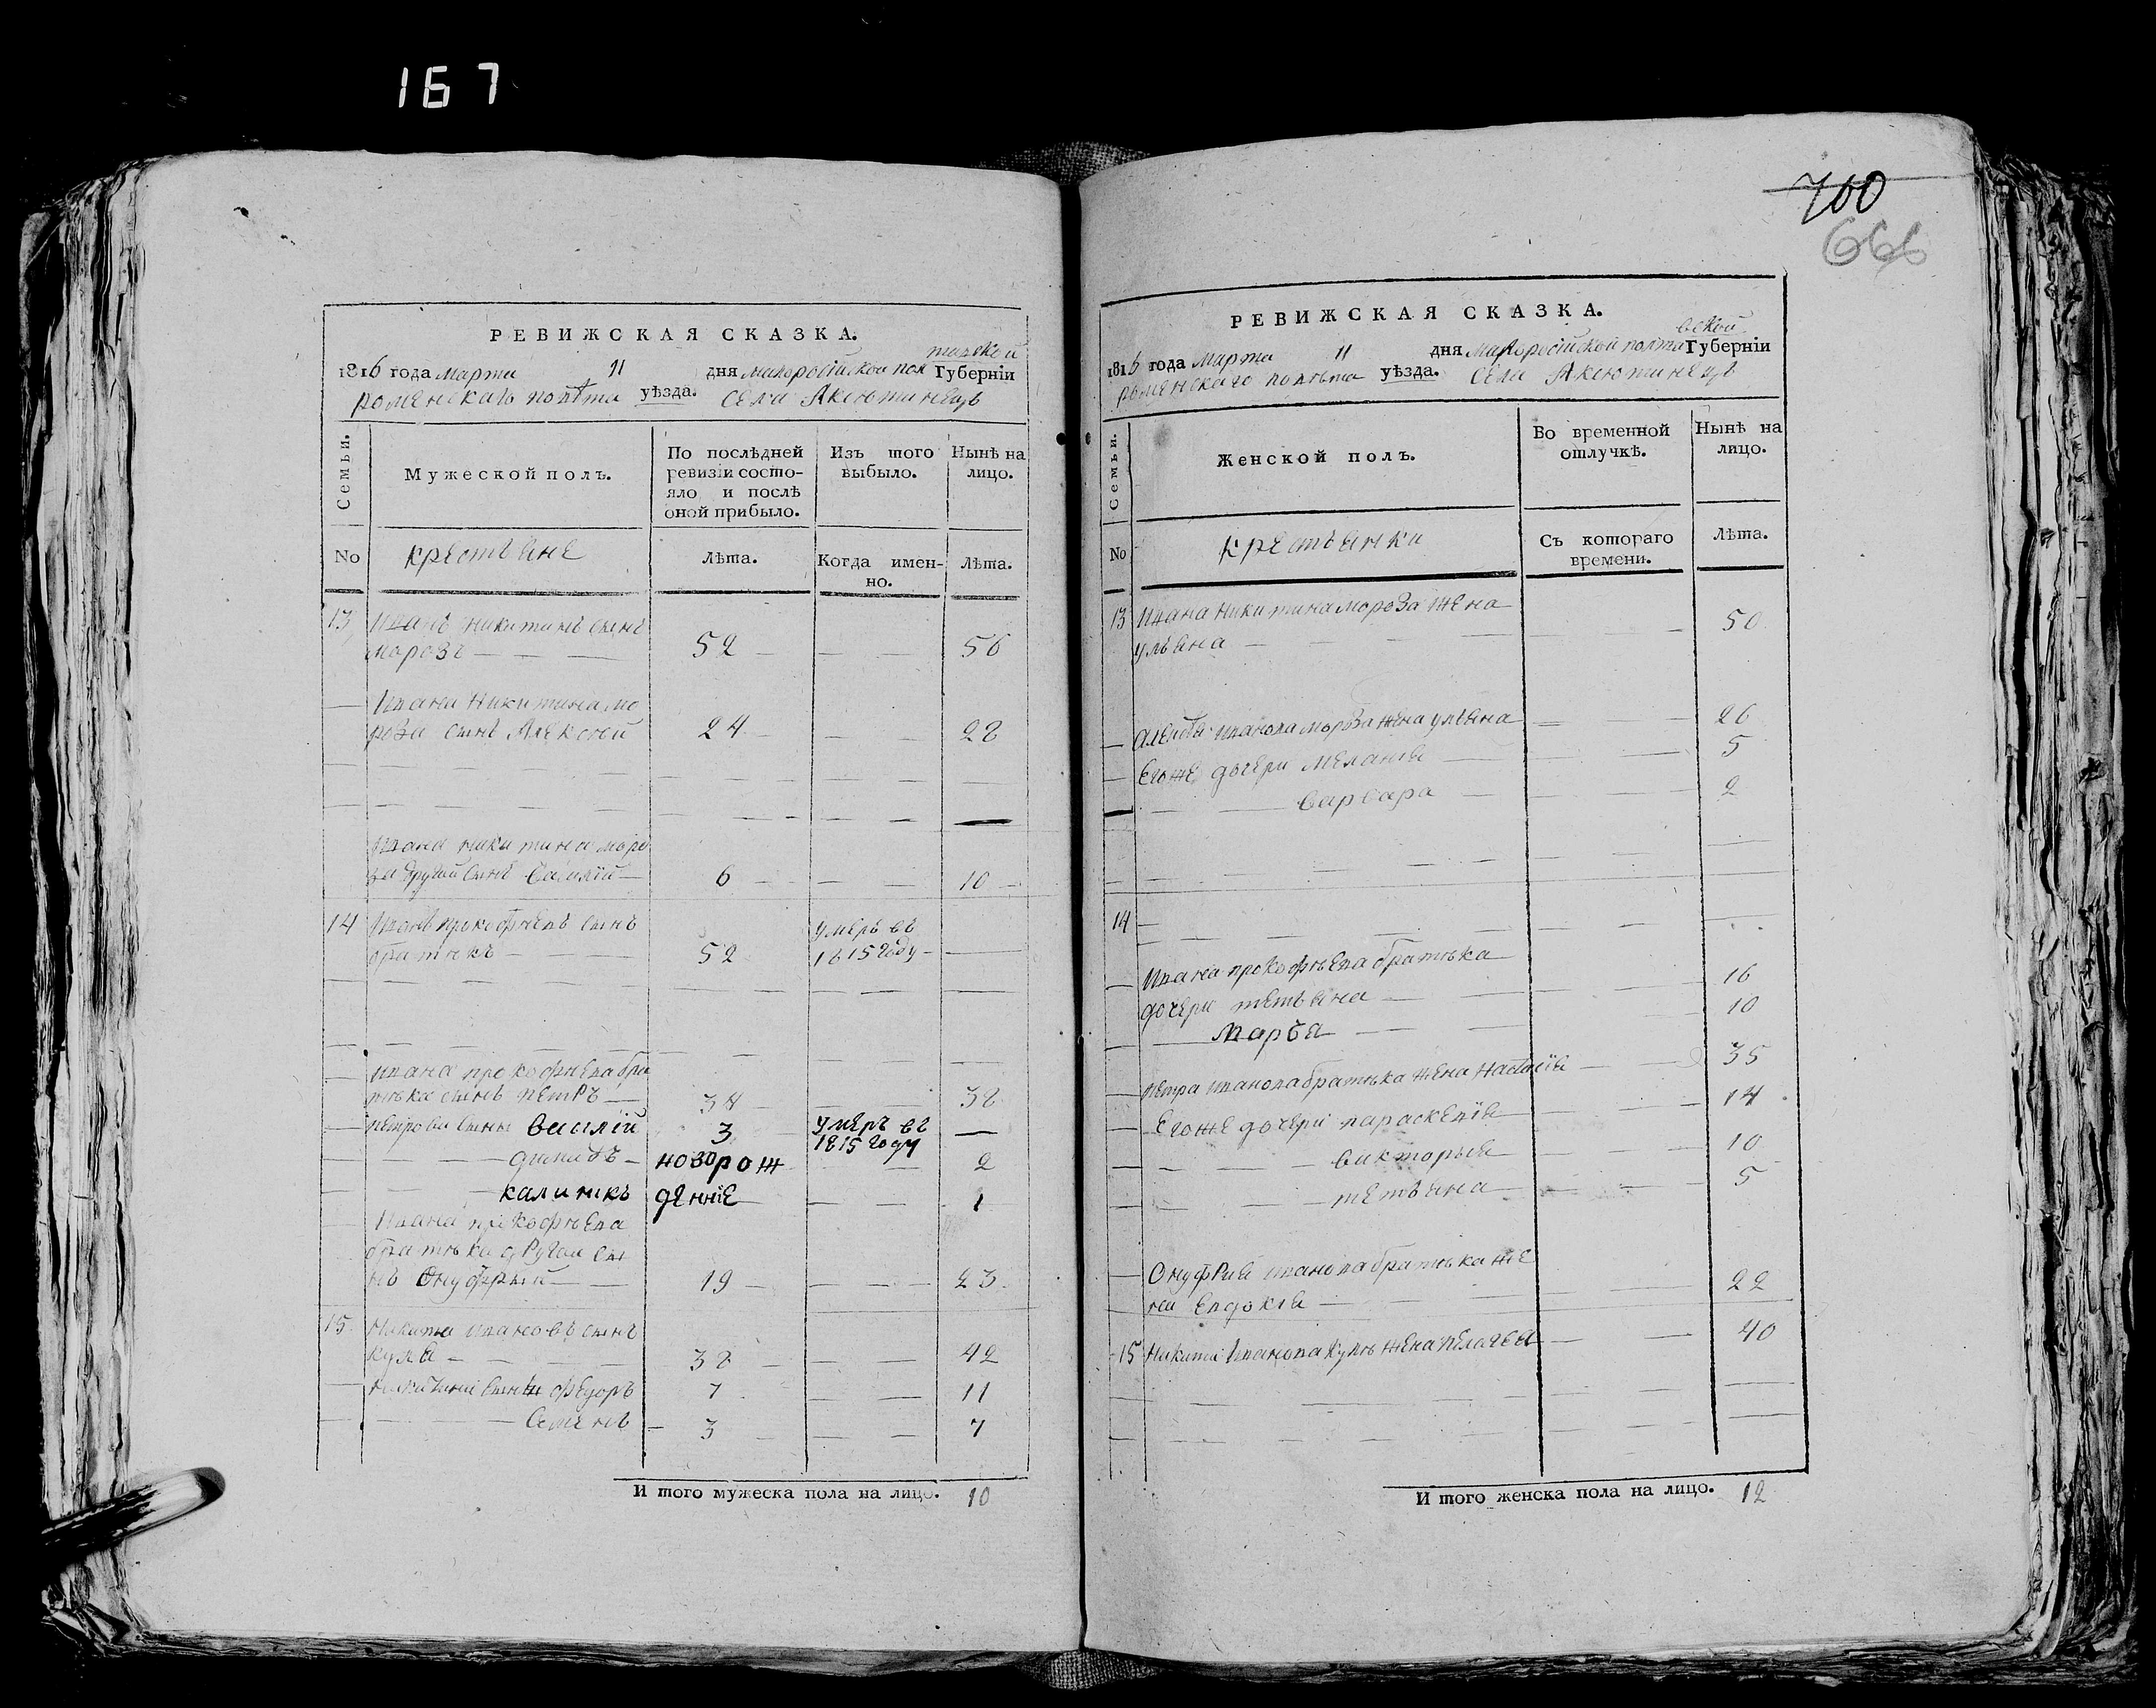 167
РЕВИЖСКАЯ СКАЗКА.
1816 года марта 11 дня малоросійской пол
тавской Губерніи
роменскаго повѣта уѣзда. села Аксютинецъ
Семьи.
Мужеской полъ.
По послѣдней
ревизіи состо-
яло и послѣ
оной прибыло.
Изъ того
выбыло.
Нынѣ на
лицо.
No
крестьяне
Лѣта.
Когда имен-
но.
Лѣта.
13 Иванъ Никитинъ сынъ
морозъ 52 56
Ивана Никитина мо
роза сынъ Алексѣй 24 28
Ивана никитина моро
за другой сынъ василій 6 10
14 Иванъ прокофіевъ сынъ умеръ въ
братикъ 52 1815 году
ивана прокофіева бра
тика сынъ петръ 34 38
петрови сыны василій 3 умеръ въ
1815 году
новорож 2
калиникъ денніе 1
Ивана прокофіева
братика другой сы
нъ Онуфрый 19 23
15 Никита ивановъ сынъ
кула 38 42
никитины сыны федоръ 7 11
Семенъ 3 7
И того мужеска пола на лицо. 10
700
666
РЕВИЖСКАЯ СКАЗКА.
1816 года марта 11 дня малоросійской полта
вской Губерніи
роменскаго повѣта уѣзда. села Аксютинецъ
Семьи.
Женской полъ.
Во временной
отлучкѣ.
Нынѣ на
лицо.
No
крестьянки
Съ котораго
времени.
Лѣта.
13 Ивана никитина мороза жена
ульяна 50
алексѣя иванова мороза жена ульяна 26
Егоже дочери меланія 5
варвара 2
14
Ивана прокофіева братика
дочери тетьяна 16
марѳа 10
петра иванова братика жена настасія 35
Егоже дочери параскевія 14
викторыя 10
тетьяна 5
Онуфрия иванова братика же
на евдокія 22
15 Никиты Иванова кулы жена пелагея 40
И того женска пола на лицо. 12